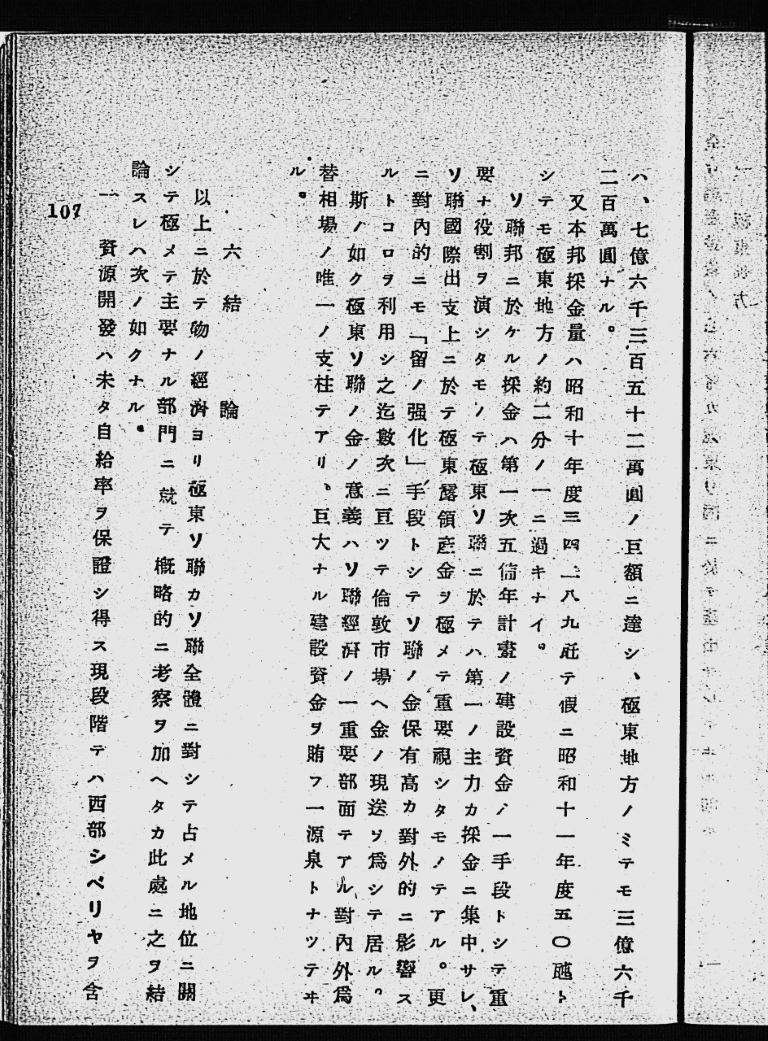 ハ、七億六千三百五十二萬圓ノ巨額ニ達シ、極東地方ノミテモ三億六千
二百萬圓ナル。
又本邦採金量ハ昭和十年度三四二八九瓩テ假ニ昭和十一年度五〇瓲ト
シテモ極東地方ノ約二分ノ一ニ過キナイ。
ソ聯邦ニ於ケル採金ハ第一次五個年計畫ノ建設資金ノ一手段トシテ重
要ナ役割ヲ演シタモノテ極東ソ聯ニ於テハ第一ノ主力カ採金ニ集中サレ、
ソ聯國際出支上ニ於テ極東露領産金ヲ極メテ重要視シタモノテアル。更
ニ對内的ニモ「留ノ强化」手段トシテソ聯ノ金保有高カ對外的ニ影響ス
ルトコロヲ利用シ之迄數次ニ亘ツテ倫敦市場ヘ金ノ現送ヲ爲シテ居ル。
斯ノ如ク極東ソ聯ノ金ノ意義ハソ聯經濟ノ一重要部面テアル對内外爲
替相場ノ唯一ノ支柱テアリ、巨大ナル建設資金ヲ賄フ一源泉トナツテヰ
ル。
六 結 論
以上ニ於テ物ノ經濟ヨリ極東ソ聯カソ聯全體ニ對シテ占メル地位ニ關
シテ極メテ主要ナル部門ニ就テ概略的ニ考察ヲ加ヘタカ此處ニ之ヲ結
論スレハ次ノ如クナル。
一 資源開發ハ未タ自給率ヲ保證シ得ス現段階テハ西部シベリヤヲ含
107